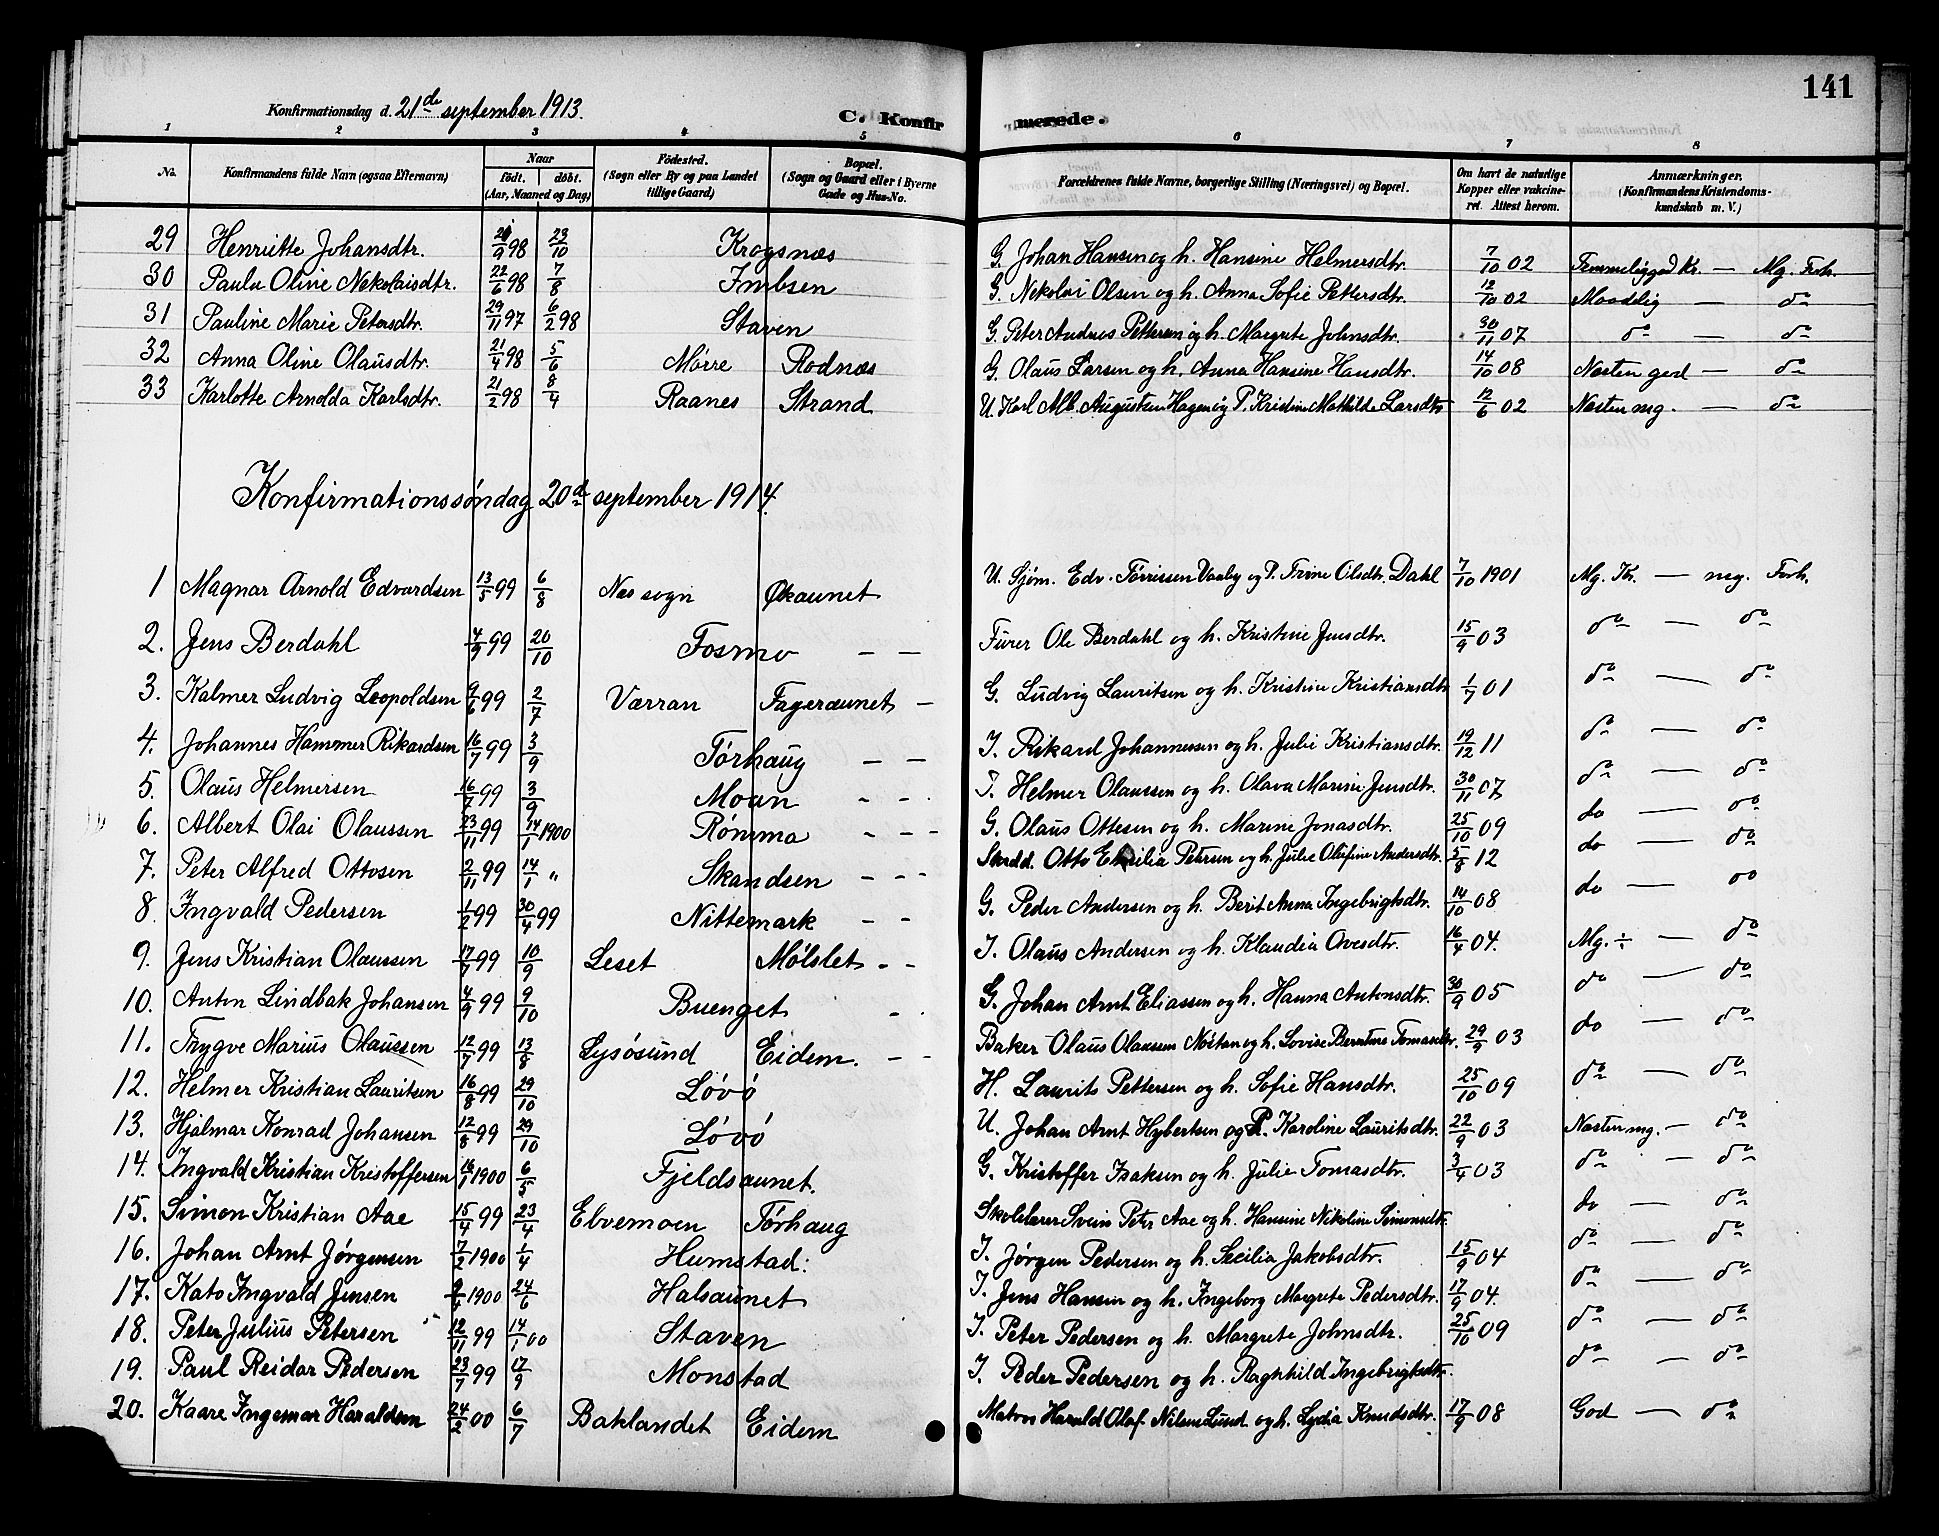 141
Konfirmationsdag d. 21de september 1913.
C. Konfirmerede.
1 2 3 4 5 6 7 8
No. Konfirmandens fulde Navn (ogsaa Efternavn) Naar født. døbt. (Aar, Maaned og Dag) Fødested. (Sogn eller By og paa Landet tillige Gaard.) Bopæl. (Sogn og Gaard eller i Byerne Gade og Hus-No. Forældrenes fulde Navne, borgerlige Stilling (Næringsvei) og Bopæl. Om havt de naturlige Kopper eller vakcineret. Attest herom. Anmærkninger. (Konfirmandens Kristendomskundskab m. V.)
29 Henriette Johansdtr. 21/9 98 23/10 Krogsnæs G. Johan Hansen og h. Hansine Helmersdtr. 7/10 02 Temmelig god Kr. — Mg. Forh.
30 Paula Oline Nekolaisdtr. 22/6 98 7/8 Imbsen G. Nekolai Olsen og h. Anna Sofie Pettersdtr. 12/10 02 Maadelig — do
31 Pauline Marie Petersdtr. 29/11 97 6/2 98 Staven G. Peter Andreas Pettersen og h. Margrete Johnsdtr. 30/11 07 do — do
32 Anna Oline Olausdtr. 21/4 98 5/6 Mørre Rodnæs G. Olaus Larsen og h. Anna Hansine Hansdtr. 14/10 08 Næsten god — do
33 Karlotte Arnolda Karlsdtr. 21/2 98 8/4 Raanes Strand U. Karl Alb. Augustsen Hagen og P. Kristine Mathilde Larsdtr 12/6 02 Næsten mg. — do
Konfirmationssøndag 20de september 1914.
1 Magnar Arnold Edvardsen 13/5 99 6/8 Næs sogn Økaunet U. Sjøm. Edv. Tørrissen Vanby og P. Trine Olsdtr. Dahl 7/10 1901 Mg. Kr. — mg. Forh.
2. Jens Berdahl 4/9 99 20/10 Fosmo — — Furer Ole Berdahl og h. Kristine Jensdtr. 15/9 03 do — do
3. Kalmer Ludvig Leopoldsen 9/6 99 2/7 Værran Fageraunet — G. Ludvig Lauritsen og h. Kristine Kristiansdtr 1/7 01 do — do
4. Johannes Hammer Rikardsen 16/7 99 3/9 Tørhaug — — I. Rikard Johannessen og h. Julie Kristiansdtr. 19/12 11 do — do
5. Olaus Helmersen 16/7 99 3/9 Moan - - . I. Helmer Olaussen og h. Olava Marine Jensdtr. 30/11 07 do — do
6. Albert Olai Olaussen 23/11 99 14/1 1900 Rømma - - - G. Olaus Ottesen og h. Marine Jonasdtr. 25/10 09 do — do
7. Peter Alfred Ottosen 2/11 99 14/1 " Skandsen - - - Smdd. Otto Emilia Petersen og h. Julie Olufine Andersdtr. 5/8 12 do — do
8. Ingvald Pedersen 1/2 99 30/4 99 Nittemark - - G. Peder Andersen og h. Berit Anna Ingebrigtsdtr. 14/10 08 do — do
9. Jens Kristian Olaussen 17/7 99 10/9 Leset Mølslet - - I. Olaus Andersen og h. Klaudia Ovesdtr. 16/4 04. Mg. ÷ — do
10. Anton Lindbak Johansen 4/9 99 9/10 Buenget - . G. Johan Arnt Eliassen og h. Hanna Antonsdtr. 30/9 05 do — do
11. Trygve Marius Olaussen 12/7 99 13/8 Lysøsund Eidem. - - Baker Olaus Olaussen Nøstan og h. Lovise Berntine Tomasdtr. 29/9 03 do — do
12. Helmer Kristian Lauritsen 16/8 99 29/10 Løvø H. Laurits Pettersen og h. Sofie Hansdtr. 25/10 09 do — do
13. Hjalmar Konrad Johansen 12/8 99 29/10 Løvø U. Johan Arnt Hybertsen og P. Karoline Lauritsdtr. 22/9 03 Næsten mg. — do
14. Ingvald Kristian Kristoffersen 16/1 1900 6/5 Fjeldsaunet. G. Kristoffer Isaksen og h. Julie Tomasdtr. 3/4 03 do — do
15. Simon Kristian Aae 15/4 99 23/4 Elvemoen Tørhaug Skolelærer Svein Peter Aae og h. Hansine Nikoline Simonsdtr. do — do
16. Johan Arnt Jørgensen 7/2 1900 1/4 Humstad: I. Jørgen Pedersen og h. Secilia Jakobsdtr. 15/9 04 do — do
17. Kato Ingvald Jensen 9/4 1900 24/6 Halsaunet I. Jens Hansen og h. Ingeborg Margrete Pedersdtr. 17/9 04. do — do
18. Peter Julius Petersen 12/11 99 14/1 00 Staven I. Peter Pedersen og h. Margrete Johnsdtr. 25/10 09 do — do
19. Paul Reidar Pedersen 23/7 99 17/9 Monstad I. Peder Pedersen og h. Raghhild Ingebrigtsdtr. do — do
20. Kaare Ingemar Haraldsen 24/2 00 6/7 Baklandet Eidem Matros Harald Olaf Nilsen Lund og h. Lydia Knudsdtr. 17/9 08 God — do